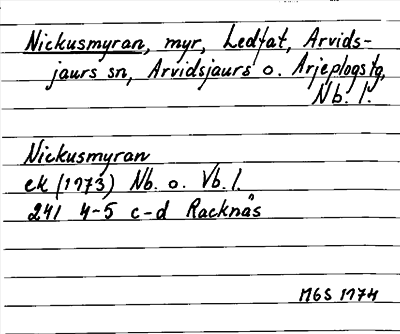 Nickusmyran, myr, Ledfat, Arvids-
jaurs sn, Arvidsjaurs o. Arjeplogs tg,
Nb. l.
Nickusmyran
ek (1973) Nb. o. Vb. l.
241 4-5 c-d Racknäs
MGS 1974